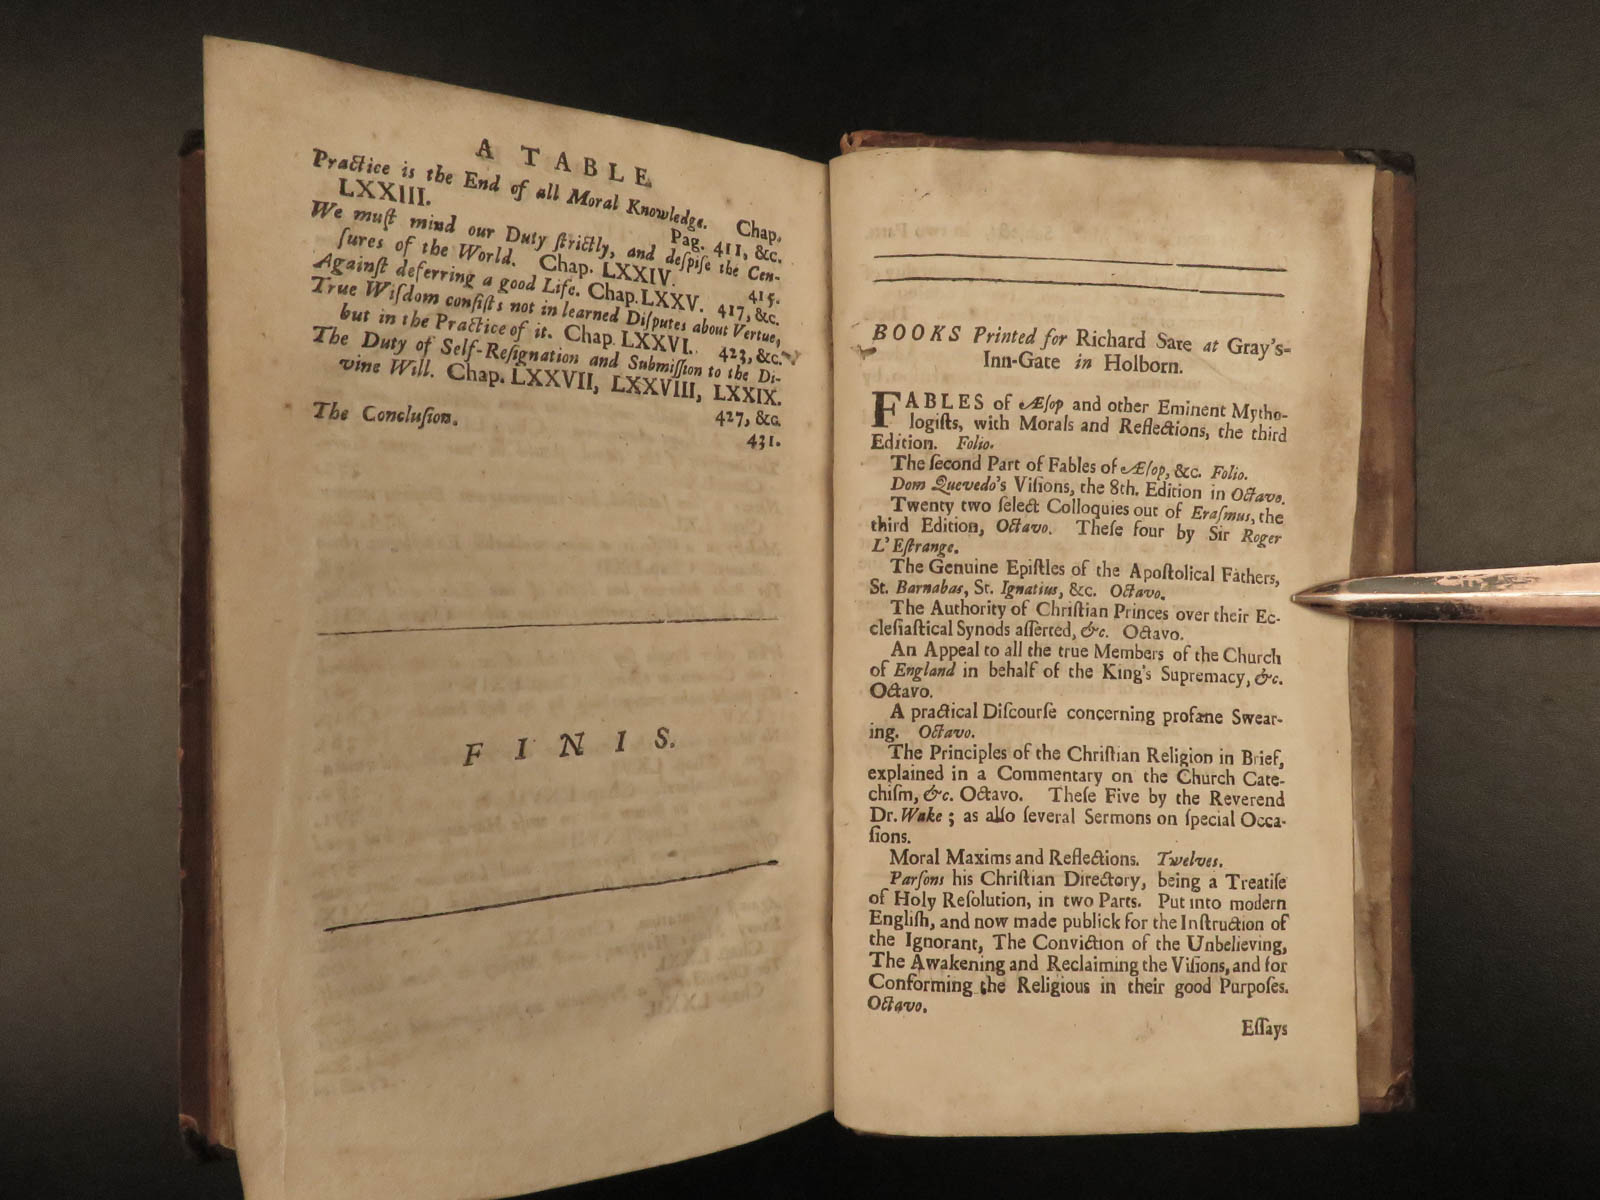 A TABLE
Practice is the End of all Moral Knowledge. Chap.
LXXIII. Pag. 411, &c.
We muſt mind our Duty ſtrictly, and deſpiſe the Cen-
ſures of the World. Chap. LXXIV. 415.
Againſt deferring a good Life. Chap. LXXV. 417, &c.
True Wiſdom conſiſts not in learned Diſputes about Vertue,
but in the Practice of it. Chap. LXXVI. 423, &c.
The Duty of Self-Reſignation and Submiſſion to the Di-
vine Will. Chap. LXXVII, LXXVIII, LXXIX.
427, &c.
The Concluſion. 431.
FINIS.
BOOKS Printed for Richard Sare at Gray's-
Inn-Gate in Holborn.
FABLES of Æſop and other Eminent Mytho-
logiſts, with Morals and Reflections, the third
Edition. Folio.
The ſecond Part of Fables of Æſop, &c. Folio.
Dom Quevedo's Viſions, the 8th. Edition in Octavo.
Twenty two ſelect Colloquies out of Eraſmus, the
third Edition, Octavo. Theſe four by Sir Roger
L'Eſtrange.
The Genuine Epiſtles of the Apoſtolical Fathers,
St. Barnabas, St. Ignatius, &c. Octavo.
The Authority of Chriſtian Princes over their Ec-
cleſiaſtical Synods aſſerted, &c. Octavo.
An Appeal to all the true Members of the Church
of England in behalf of the King's Supremacy, &c.
Octavo.
A practical Diſcourſe concerning profane Swear-
ing. Octavo.
The Principles of the Chriſtian Religion in Brief,
explained in a Commentary on the Church Cate-
chiſm, &c. Octavo. Theſe Five by the Reverend
Dr. Wake; as alſo ſeveral Sermons on ſpecial Occa-
ſions.
Moral Maxims and Reflections. Twelves.
Parſons his Chriſtian Directory, being a Treatiſe
of Holy Reſolution, in two Parts. Put into modern
Engliſh, and now made publick for the Inſtruction of
the Ignorant, The Conviction of the Unbelieving,
The Awakening and Reclaiming the Viſions, and for
Conforming the Religious in their good Purpoſes.
Octavo.
Eſſays